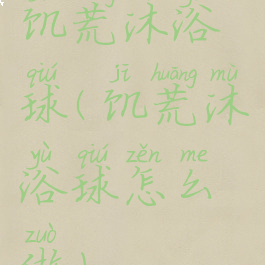 饥荒沐浴
qiú jī huāng mù
球(饥荒沐
yù qiú zěn me
浴球怎么
zuò